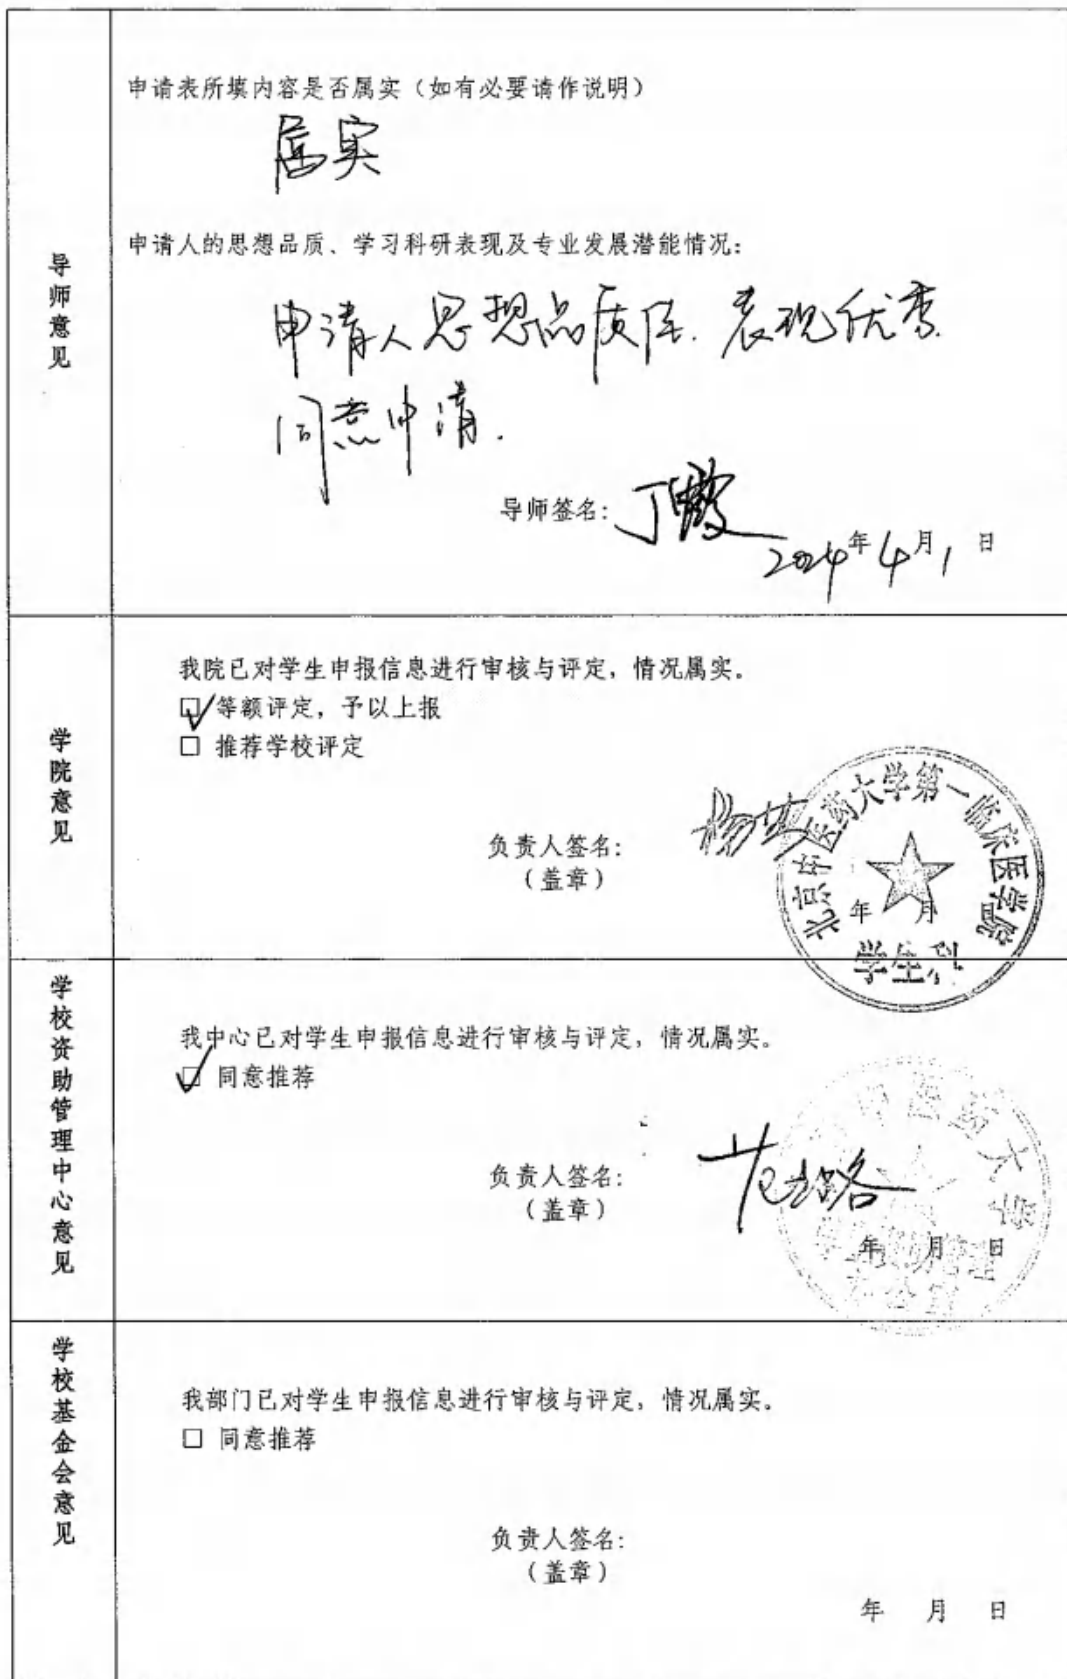 导师意见
申请表所填内容是否属实（如有必要请作说明）
属实
申请人的思想品质、学习科研表现及专业发展潜能情况：
申请人思想品质佳. 表现优秀
同意申请.
导师签名：丁霞
2024年4月1日
学院意见
我院已对学生申报信息进行审核与评定，情况属实。
☑ 等额评定，予以上报
□ 推荐学校评定
负责人签名：
（盖章）
年 月
北京中医药大学第一临床医学院
学生
学校资助管理中心意见
我中心已对学生申报信息进行审核与评定，情况属实。
☑ 同意推荐
负责人签名：
（盖章）
年 月 日
中医药大学
学校基金会意见
我部门已对学生申报信息进行审核与评定，情况属实。
□ 同意推荐
负责人签名：
（盖章）
年 月 日